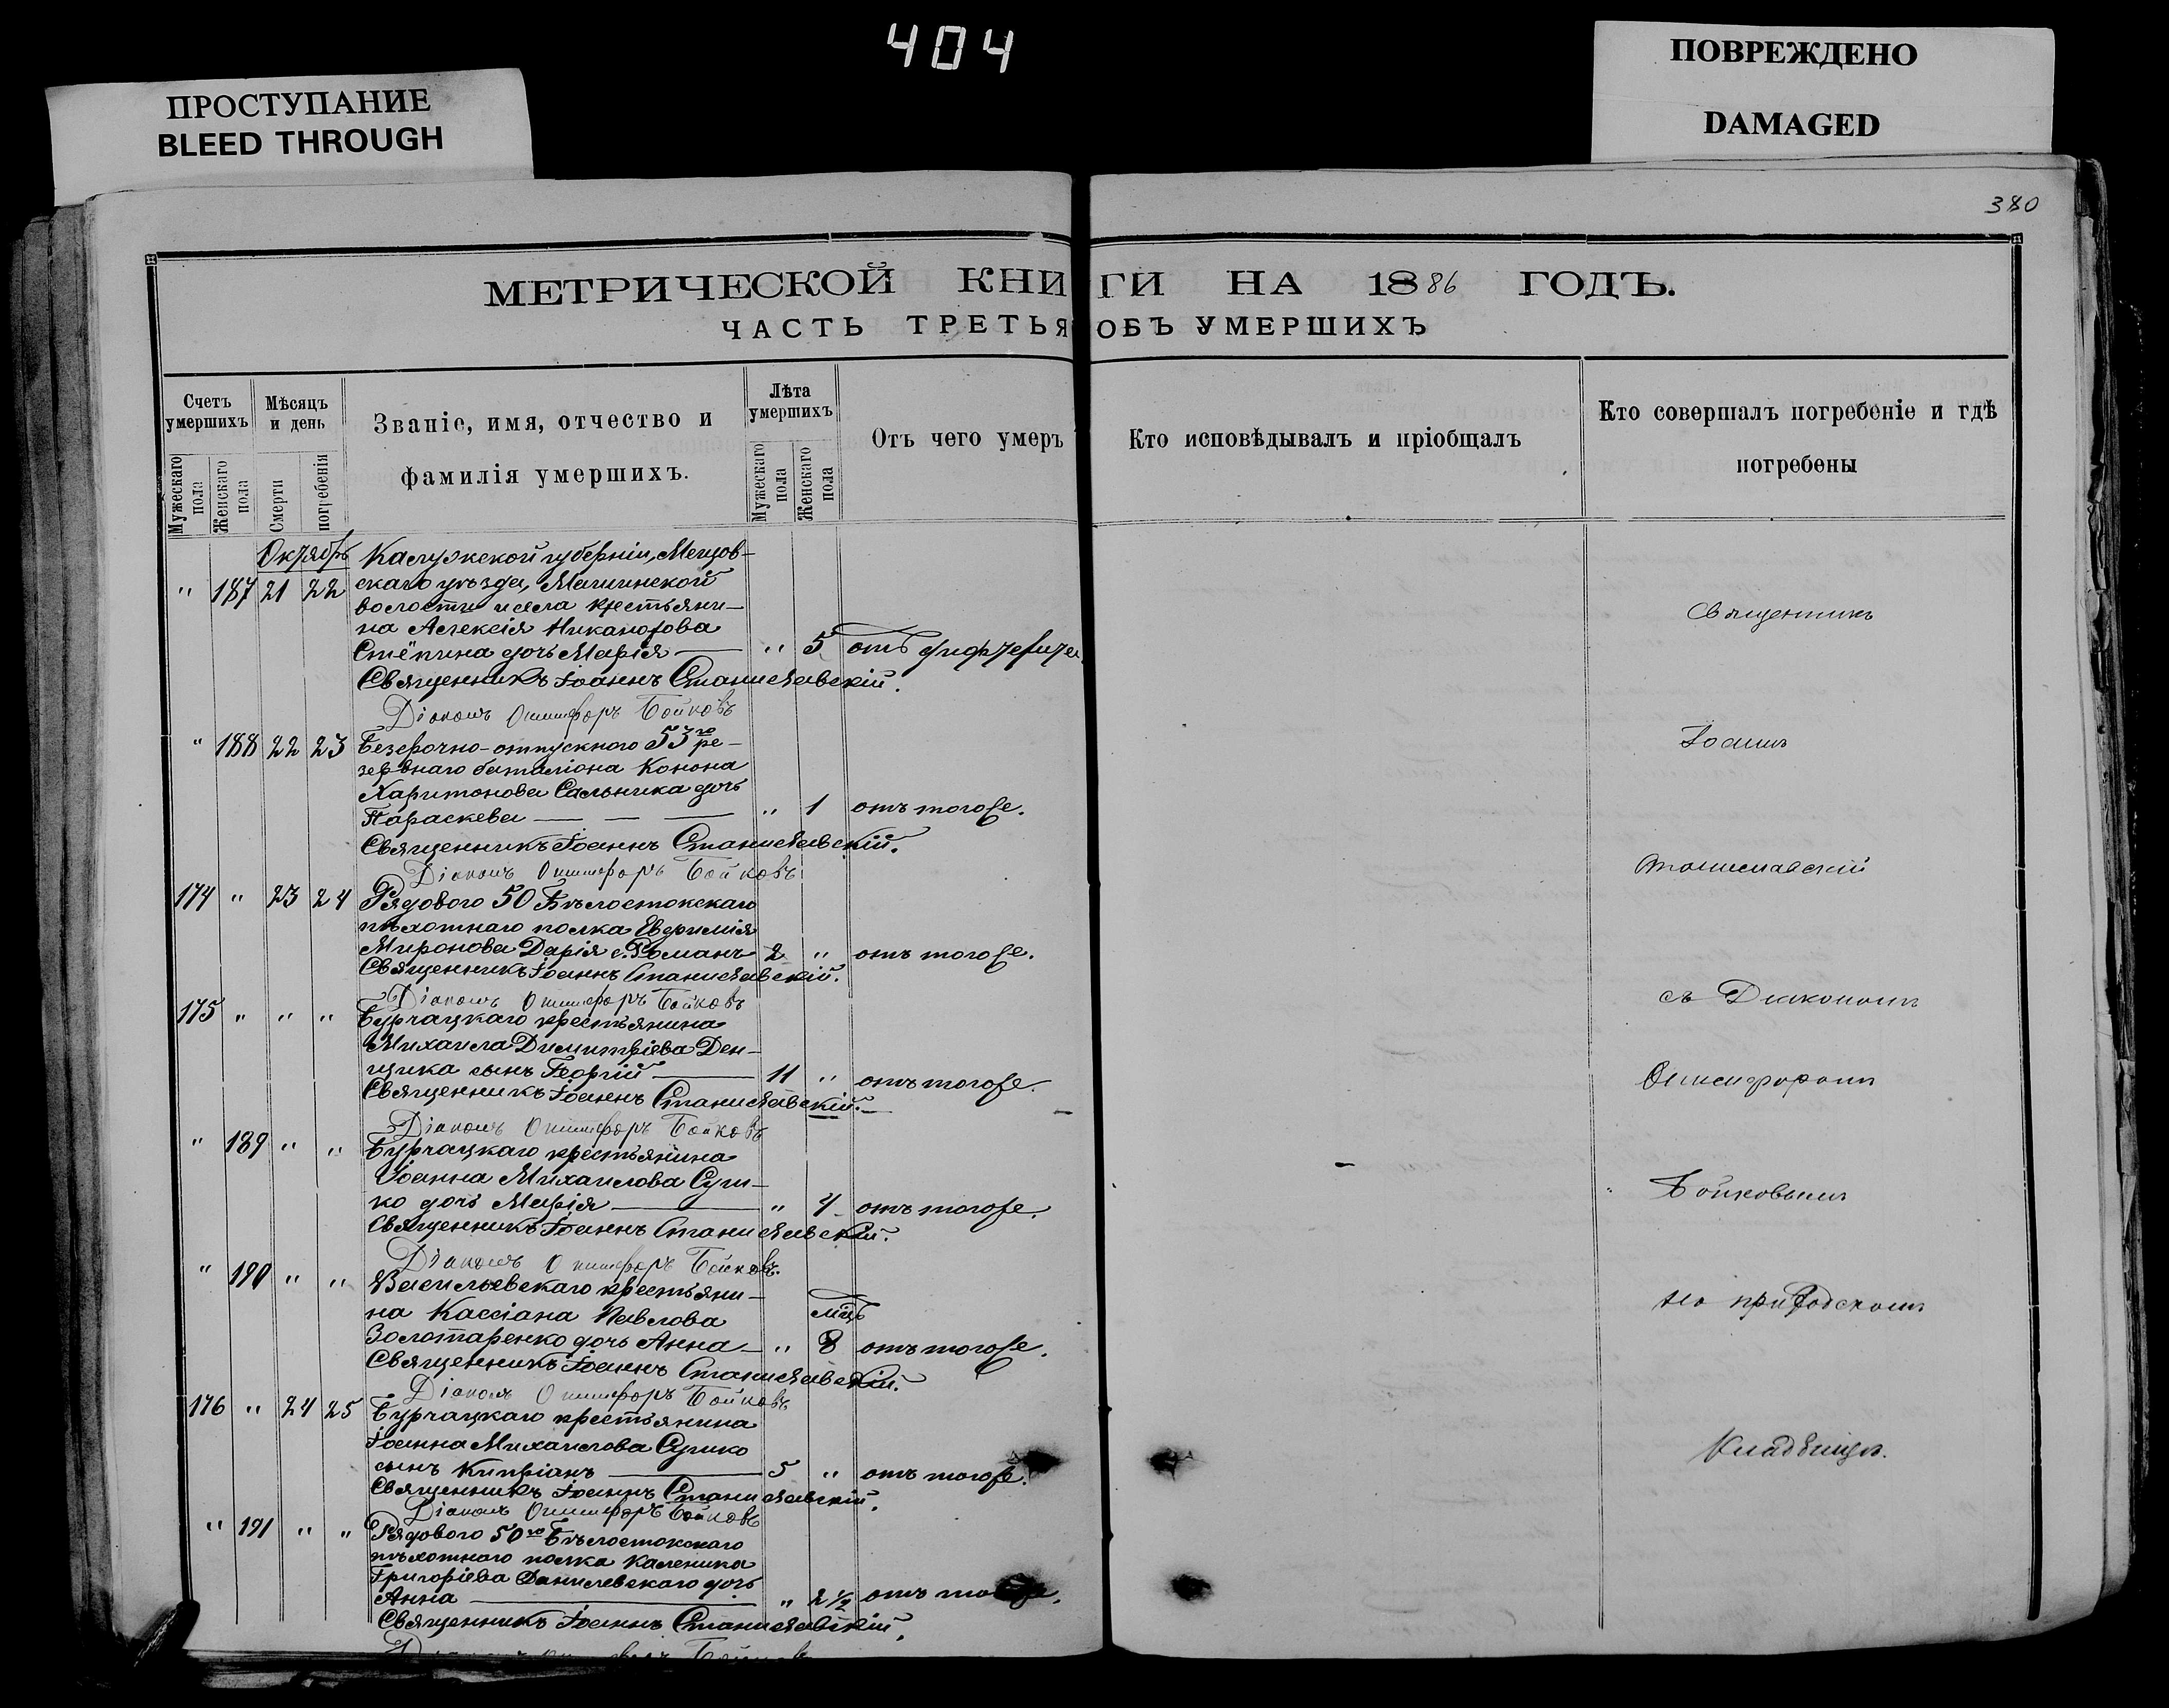 404
ПРОСТУПАНИЕ
BLEED THROUGH
ПОВРЕЖДЕНО
DAMAGED
380
МЕТРИЧЕСКОЙ КНИГИ НА 1886 ГОДЪ.
ЧАСТЬ ТРЕТЬЯ ОБЪ УМЕРШИХЪ
Счетъ умершихъ
Мужескаго пола
Женскаго пола
Мѣсяцъ и день
Смерти
погребенія
Званіе, имя, отчество и
фамилія умершихъ.
Лѣта умершихъ
Мужескаго пола
Женскаго пола
Отъ чего умеръ
Кто исповѣдывалъ и пріобщалъ
Кто совершалъ погребеніе и гдѣ
погребены
Октябрь Калужской губерніи, Мещов-
" 187 21 22 скаго уѣзда,
волости и села крестьяни-
на Алексія Никанорова
Стёпина дочь Марія " 5 отъ дифтерита
Священникъ Іоаннъ Станиславскій.
Діаконъ Онисифоръ Бойковъ
" 188 22 23 Безсрочно-отпускного 53го ре-
зервнаго баталіона Конона
Харитонова Сальника дочь
Параскева " 1 отъ тогоже.
Священникъ Іоаннъ Станиславскій.
Діаконъ Онисифоръ Бойковъ
174 " 23 24 Рядового 50 Бѣлостокскаго
пѣхотнаго полка Евфимія
Миронова Дарія с. Романъ 2 " отъ тогоже.
Священникъ Іоаннъ Станиславскій.
Діаконъ Онисифоръ Бойковъ
175 " " " Бурчацкаго крестьянина
Михаила Димитріева Ден-
щика сынъ Георгій 11 " отъ тогоже.
Священникъ Іоаннъ Станиславскій.
Діаконъ Онисифоръ Бойковъ
" 189 " " Бурчацкаго крестьянина
Іоанна Михаилова Суш-
ко дочь Марія " 4 отъ тогоже.
Священникъ Іоаннъ Станиславскій.
Діаконъ Онисифоръ Бойковъ.
" 190 " " Васильевскаго крестьяни-
на Кассіана Павлова мѣц
Золотаренко дочь Анна " 8 отъ тогоже.
Священникъ Іоаннъ Станиславскій.
Діаконъ Онисифоръ Бойковъ
176 " 24 25 Бурчацкаго крестьянина
Іоанна Михаилова Сушко
сынъ Кипріанъ 5 " отъ тогоже.
Священникъ Іоаннъ Станиславскій.
Діаконъ Онисифоръ Бойковъ
" 191 " " Рядового 50го Бѣлостокскаго
пѣхотнаго полка Каленика
Григоріева Данилевскаго дочь
Анна " 2 1/2 отъ тогоже.
Священникъ Іоаннъ Станиславскій.
Священникъ
Іоаннъ
Станиславскій
съ Діакономъ
Онисифоромъ
Бойковымъ
на приходскомъ
кладбищѣ.